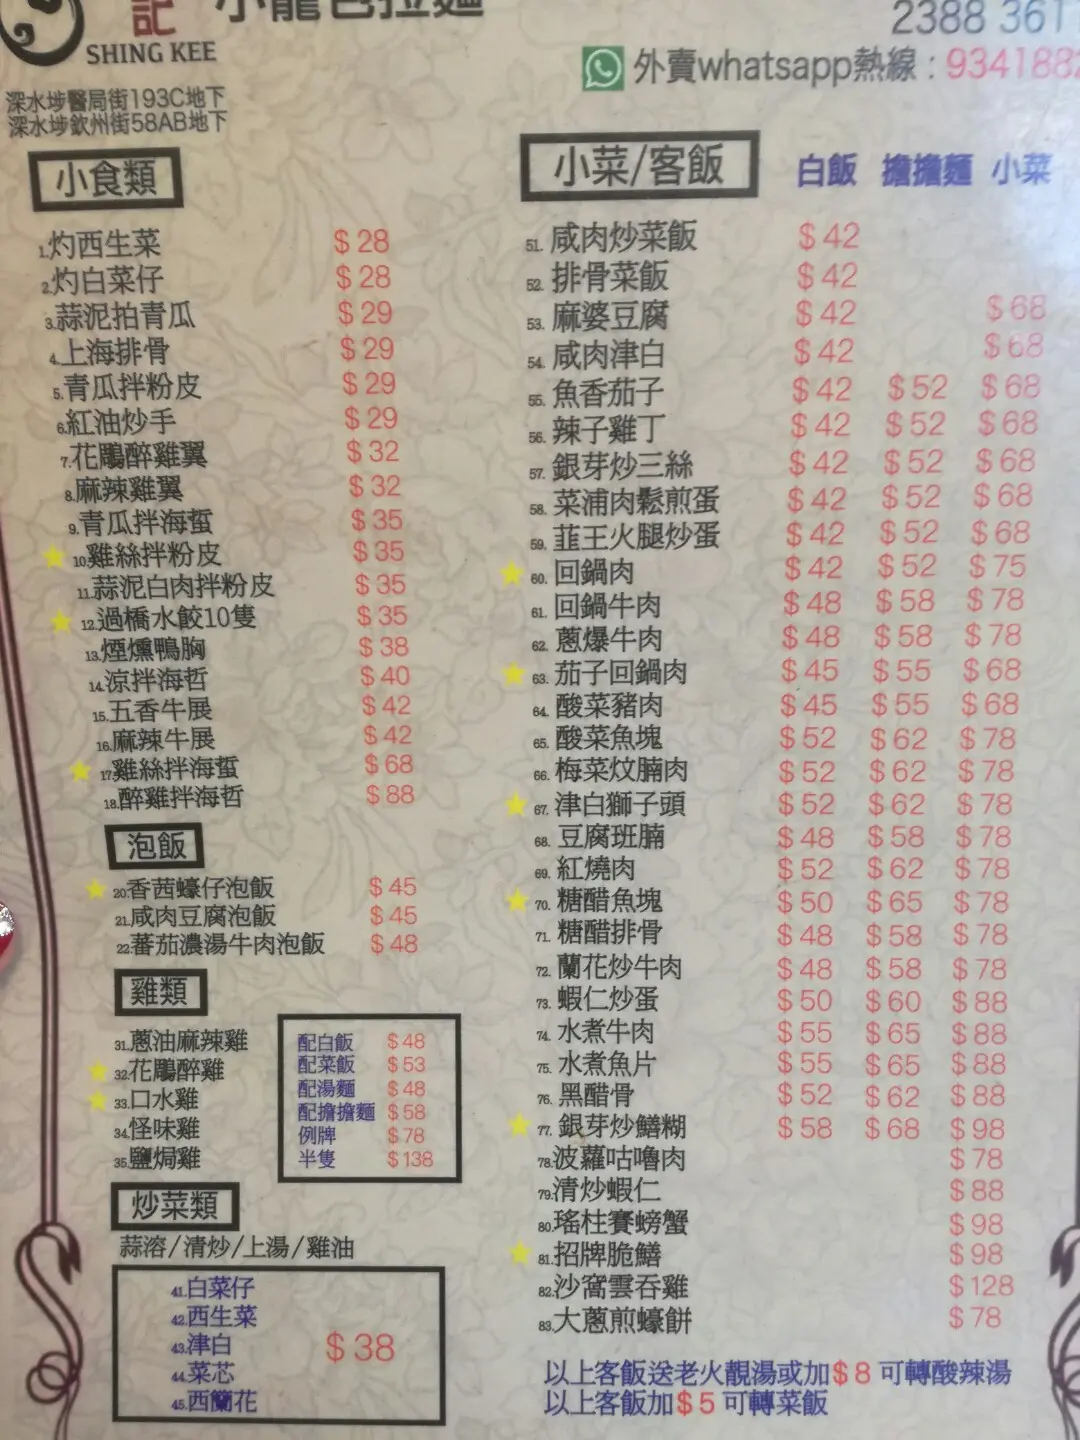 記 小籠包拉麵
SHING KEE
2388 361
外賣whatsapp熱線 : 934188
深水埗醫局街193C地下
深水埗欽州街58AB地下
小食類
1.灼西生菜 $28
2.灼白菜仔 $28
3.蒜泥拍青瓜 $29
4.上海排骨 $29
5.青瓜拌粉皮 $29
6.紅油炒手 $29
7.花鵰醉雞翼 $32
8.麻辣雞翼 $32
9.青瓜拌海蜇 $35
10.雞絲拌粉皮 $35
11.蒜泥白肉拌粉皮 $35
12.過橋水餃10隻 $35
13.煙燻鴨胸 $38
14.涼拌海哲 $40
15.五香牛展 $42
16.麻辣牛展 $42
17.雞絲拌海蜇 $68
18.醉雞拌海哲 $88
泡飯
20.香茜蠔仔泡飯 $45
21.咸肉豆腐泡飯 $45
22.蕃茄濃湯牛肉泡飯 $48
雞類
31.蔥油麻辣雞
32.花鵰醉雞
33.口水雞
34.怪味雞
35.鹽焗雞
配白飯 $48
配菜飯 $53
配湯麵 $48
配擔擔麵 $58
例牌 $78
半隻 $138
炒菜類
蒜溶/清炒/上湯/雞油
41.白菜仔
42.西生菜
43.津白
44.菜芯
45.西蘭花
$38
小菜/客飯 白飯 擔擔麵 小菜
51. 咸肉炒菜飯 $42
52. 排骨菜飯 $42
53. 麻婆豆腐 $42 $68
54. 咸肉津白 $42 $68
55. 魚香茄子 $42 $52 $68
56. 辣子雞丁 $42 $52 $68
57. 銀芽炒三絲 $42 $52 $68
58. 菜浦肉鬆煎蛋 $42 $52 $68
59. 韮王火腿炒蛋 $42 $52 $68
60. 回鍋肉 $42 $52 $75
61. 回鍋牛肉 $48 $58 $78
62. 蔥爆牛肉 $48 $58 $78
63. 茄子回鍋肉 $45 $55 $68
64. 酸菜豬肉 $45 $55 $68
65. 酸菜魚塊 $52 $62 $78
66. 梅菜炆腩肉 $52 $62 $78
67. 津白獅子頭 $52 $62 $78
68. 豆腐班腩 $48 $58 $78
69. 紅燒肉 $52 $62 $78
70. 糖醋魚塊 $50 $65 $78
71. 糖醋排骨 $48 $58 $78
72. 蘭花炒牛肉 $48 $58 $78
73. 蝦仁炒蛋 $50 $60 $88
74. 水煮牛肉 $55 $65 $88
75. 水煮魚片 $55 $65 $88
76. 黑醋骨 $52 $62 $88
77. 銀芽炒鱔糊 $58 $68 $98
78.波蘿咕嚕肉 $78
79.清炒蝦仁 $88
80.瑤柱賽螃蟹 $98
81.招牌脆鱔 $98
82.沙窩雲吞雞 $128
83.大蔥煎蠔餅 $78
以上客飯送老火靚湯或加$8可轉酸辣湯
以上客飯加$5可轉菜飯